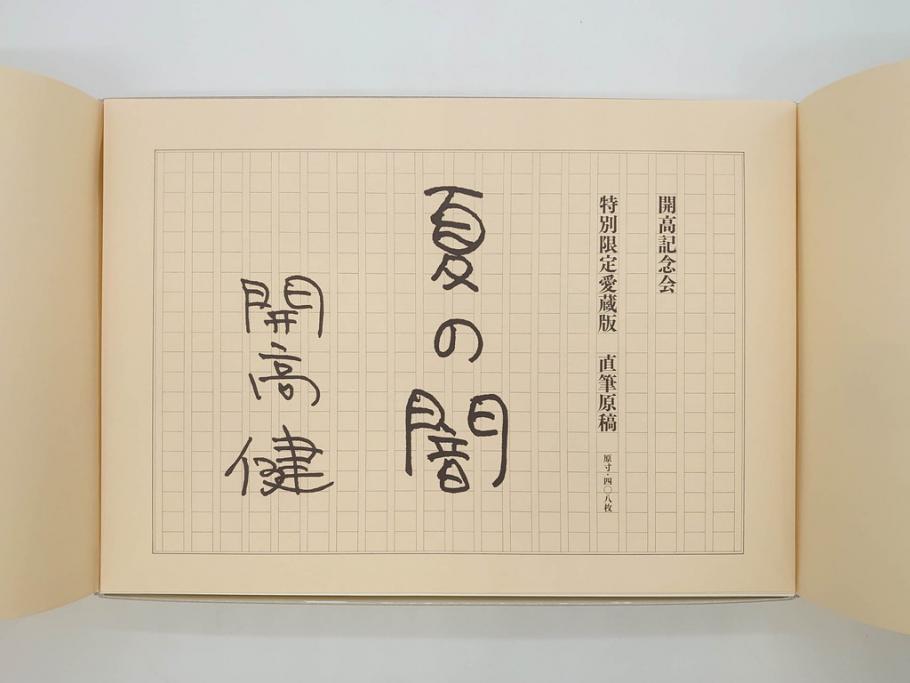 開高記念会
特別限定愛蔵版　直筆原稿　原寸・四〇八枚
夏の闇
開高健